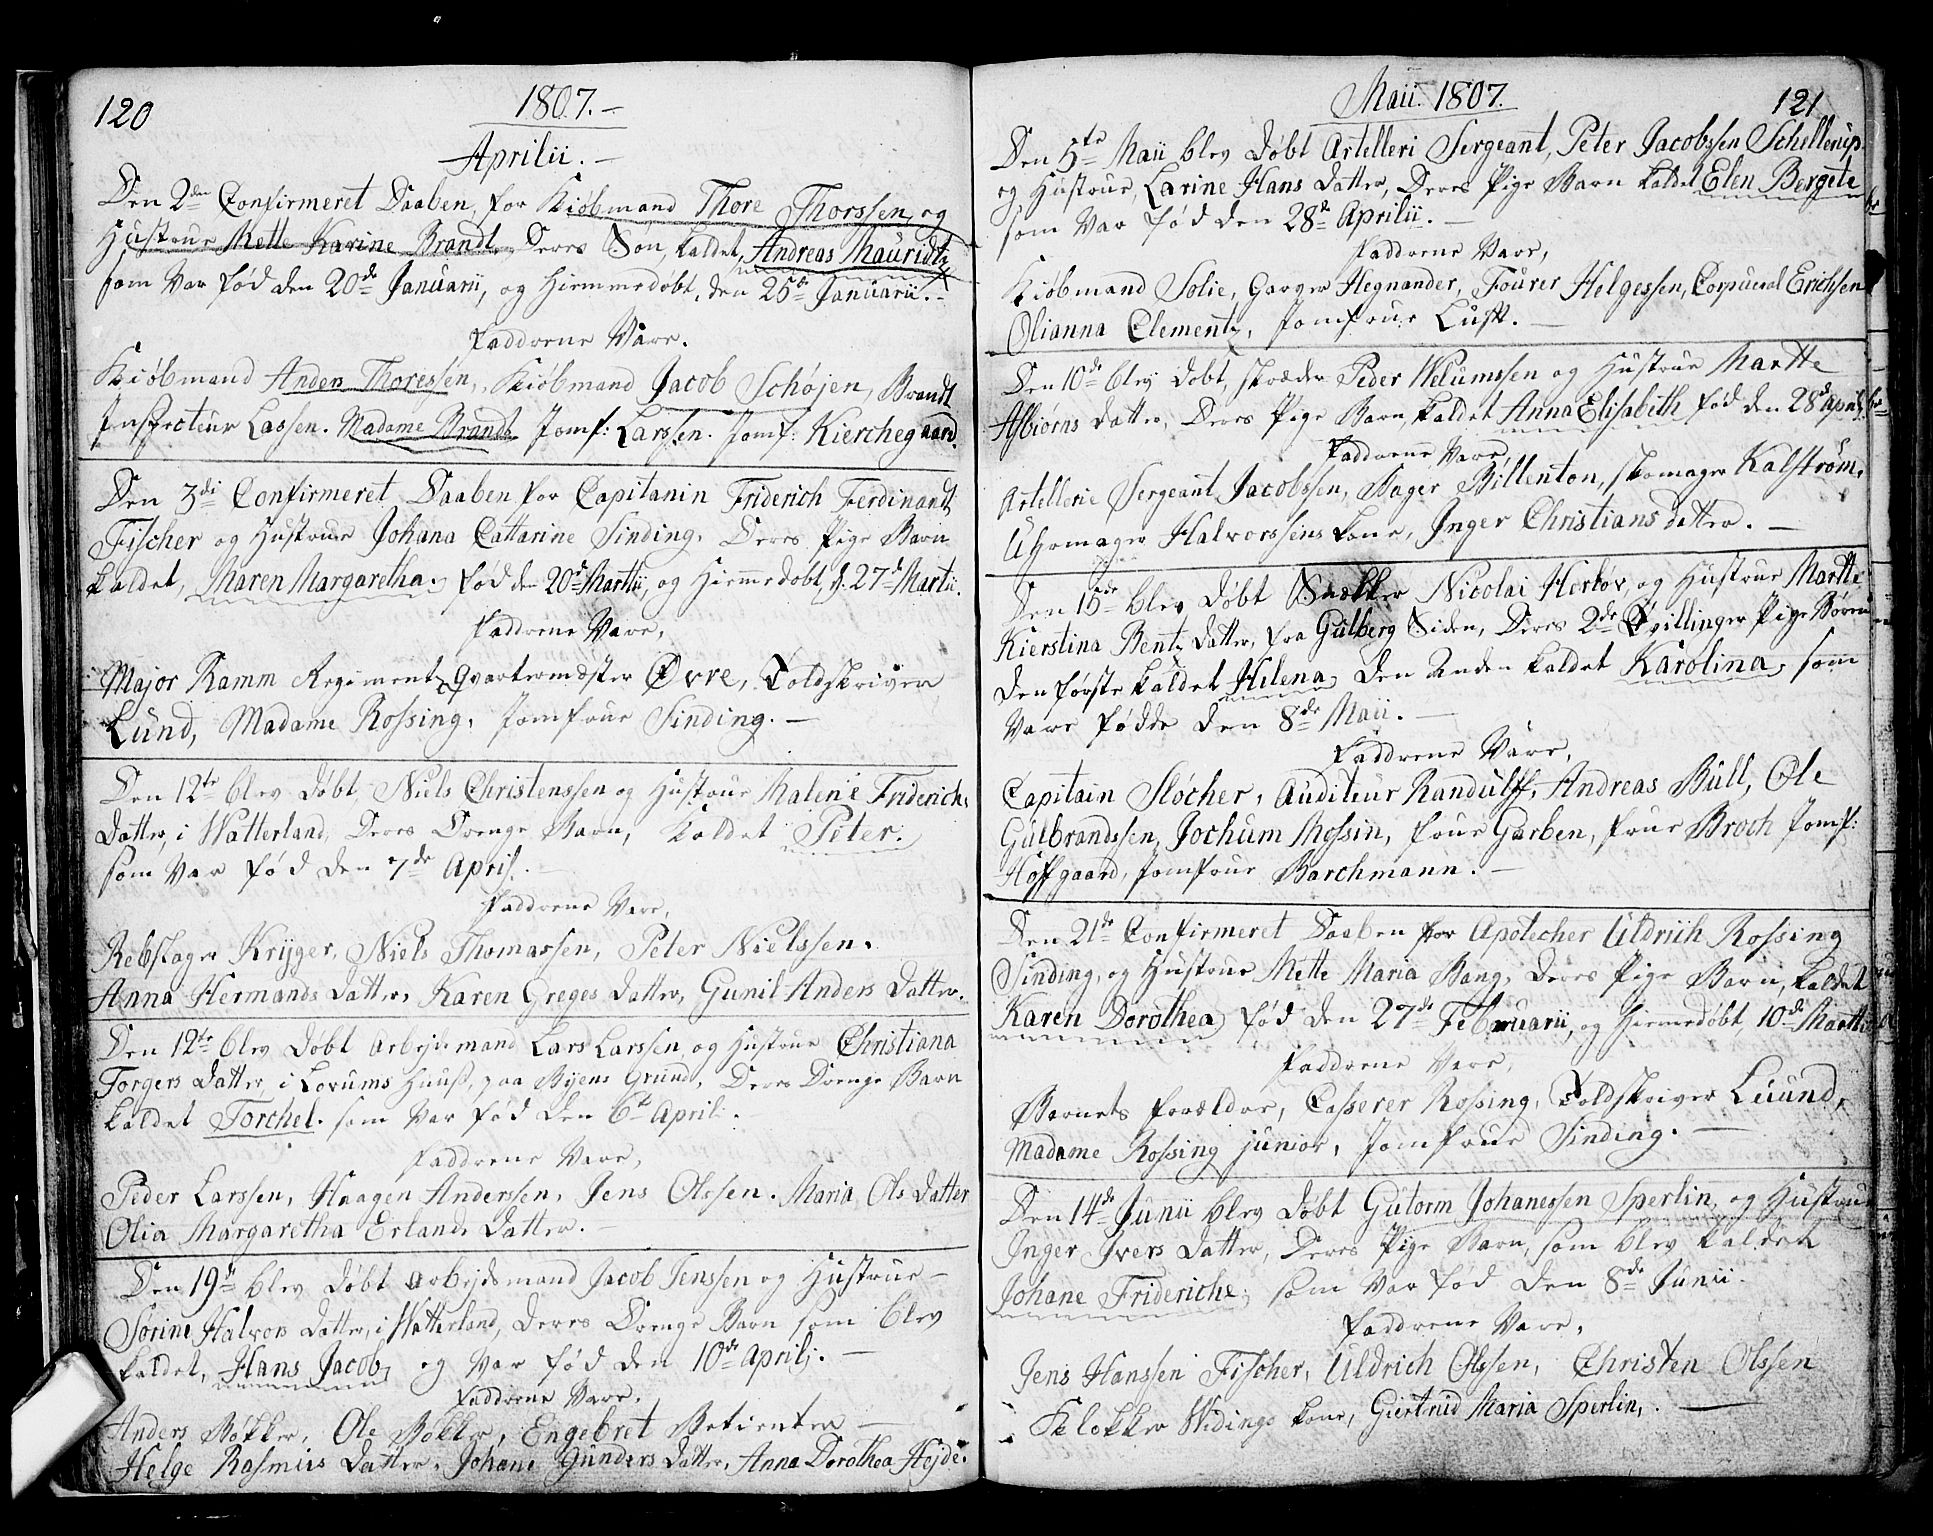 120
1807.-
Aprilii.-
Den 2den Confirmeret Daaben, for Kiøbmand Thore Thorssen, og
Hustrue Mette Karine Brandt, Deres Søn, kaldet, Andreas Mauridtz,
som var fød den 20de Januarii, og Hiemmedøbt, den 25de Januarii.-
Faddrene Vare.
Kiøbmand Anden Thoressen, Kiøbmand Jacob Schøjen, Brandt
Inspecteur Lassen. Madame Brandt Jomf: Larssen. Jomf: Kierchegaard.
Den 3di Confirmeret Daaben for Capitanin Friderich Ferdinandt
Fischer og Hustrue Johana Cattarine Sinding, Deres Pige Barn
kaldet, Maren Margaretha. fød den 20de Martii, og Hiemedøbt, d. 27de Martii.
Faddrene Vare,
Major Ramm Regimentz Qvartermæster Øvre, Toldskriver
Lund, Madame Rossing, Jomfrue Sinding.-
Den 12te blev døbt, Niuls Christenssen og Hustrue Malene Friderichs
Datter, i Watterland, Deres Drenge Barn, kaldet Peter.
som var fød den 7de April.-
Faddrene Vare,
Rebslager Kryger, Niels Thomassen, Peter Nielssen.
Anna Hermands datter, Karen Greges datter, Gunil Anders Datter.
Den 12te blev døbt arbejdsmand Lars Larssen og Hustrue Christiana
Torgers datter, i Lorums Huus, paa Byens Grund, Deres Drenge Barn
kaldet Torchel. som var fød den 6te April.
Faddrene Vare,
Peder Larssen, Haagen Anderssen, Jens Olssen. Maria Ols datter
Olia Margaretha Erlands datter.-
Den 19de blev døbt arbejdsmand Jacob Jenssen og Hustrue-
Sørine Halvors datter, i Watterland, Deres Drenge Barn som blev
kaldet, Hans Jacob, og var fød den 10de Aprilj.-
Faddrene Vare.
Anders Bøkker, Ole Bøkker, Engebret Betienter-
Helge Rasmus datter, Johane Gunders datter, Anna Dorothea Hejde.
Maii. 1807.
121
Den 5te Maii blev døbt Artelleri Sergeant, Peter Jacobssen Schellerup.
og Hustrue, Larine Hans datter, Deres Pige Barn kaldet Elen Bergete
som var fød den 28de Aprilii.-
Faddrene Vare,
Kiøbmand Solie, Garver Hegnander, Fourer Helgessen, Corpueral Erichsen
Olianna Clementz, Jomfrue Lust.-
Den 10de blev døbt, skræder Peder Welumssen og Hustrue Martte
Asbiørns datter, Deres Pige Barn, kaldet Anna Elisabeth fød den 28de April.
Faddrene Vare,
Artellerie Sergeant Jacobssen, Bager Billenton, skomager Kalstrøm,
Uhrmager Halvorssens kone, Inger Christians datter.-
Den 15de blev døbt Snækker Nicolai Hertør, og Hustrue Martte
Kierstina Bentz datter, fra Gulberg Siden, Deres 2de Tvillinger Pige Børn
den første kaldet Helena, den anden kaldet Karolina, som
Vare fødde den 8de Maii.-
Faddrene Vare,
Capitain Slocher, Auditeur Randulff, Andreas Bull, Ole
Gulbrandssen, Jochum Rossin, frue Garben, frue Broch Jomf:
Hoffgaard, Jomfrue Barchmann.-
Den 21de Confirmeret Daaben for Apotecher Uldrich Rossing
Sinding, og Hustrue Mette Maria Bang, Deres Pige Barn, kaldet
Karen Dorothea, fød den 27de Februarii, og Hiemedøbt, 10de Martii
Faddrene Vare,
Barnets forældre, Casserer Rossing, Toldskriver Luund,
Madame Rossing junior, Jomfrue Sinding.-
Den 14de Junii blev døbt Gutorm Johanessen Sperlin, og Hustrue
Inger Ivers datter, Deres Pige Barn, som blev kaldet
Johane Frideriche, som var fød den 8de Junii.
Faddrene Vare,
Jens Hanssen Fischer, Uldrich Olssen, Christen Olssen
Klokker Widings kone, Giertrud Maria Sperlin,.-